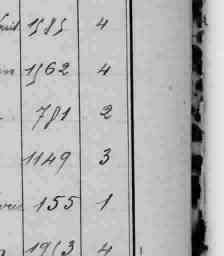 1585 4
1562 4
781 2
1149 3
155 1
1963 4